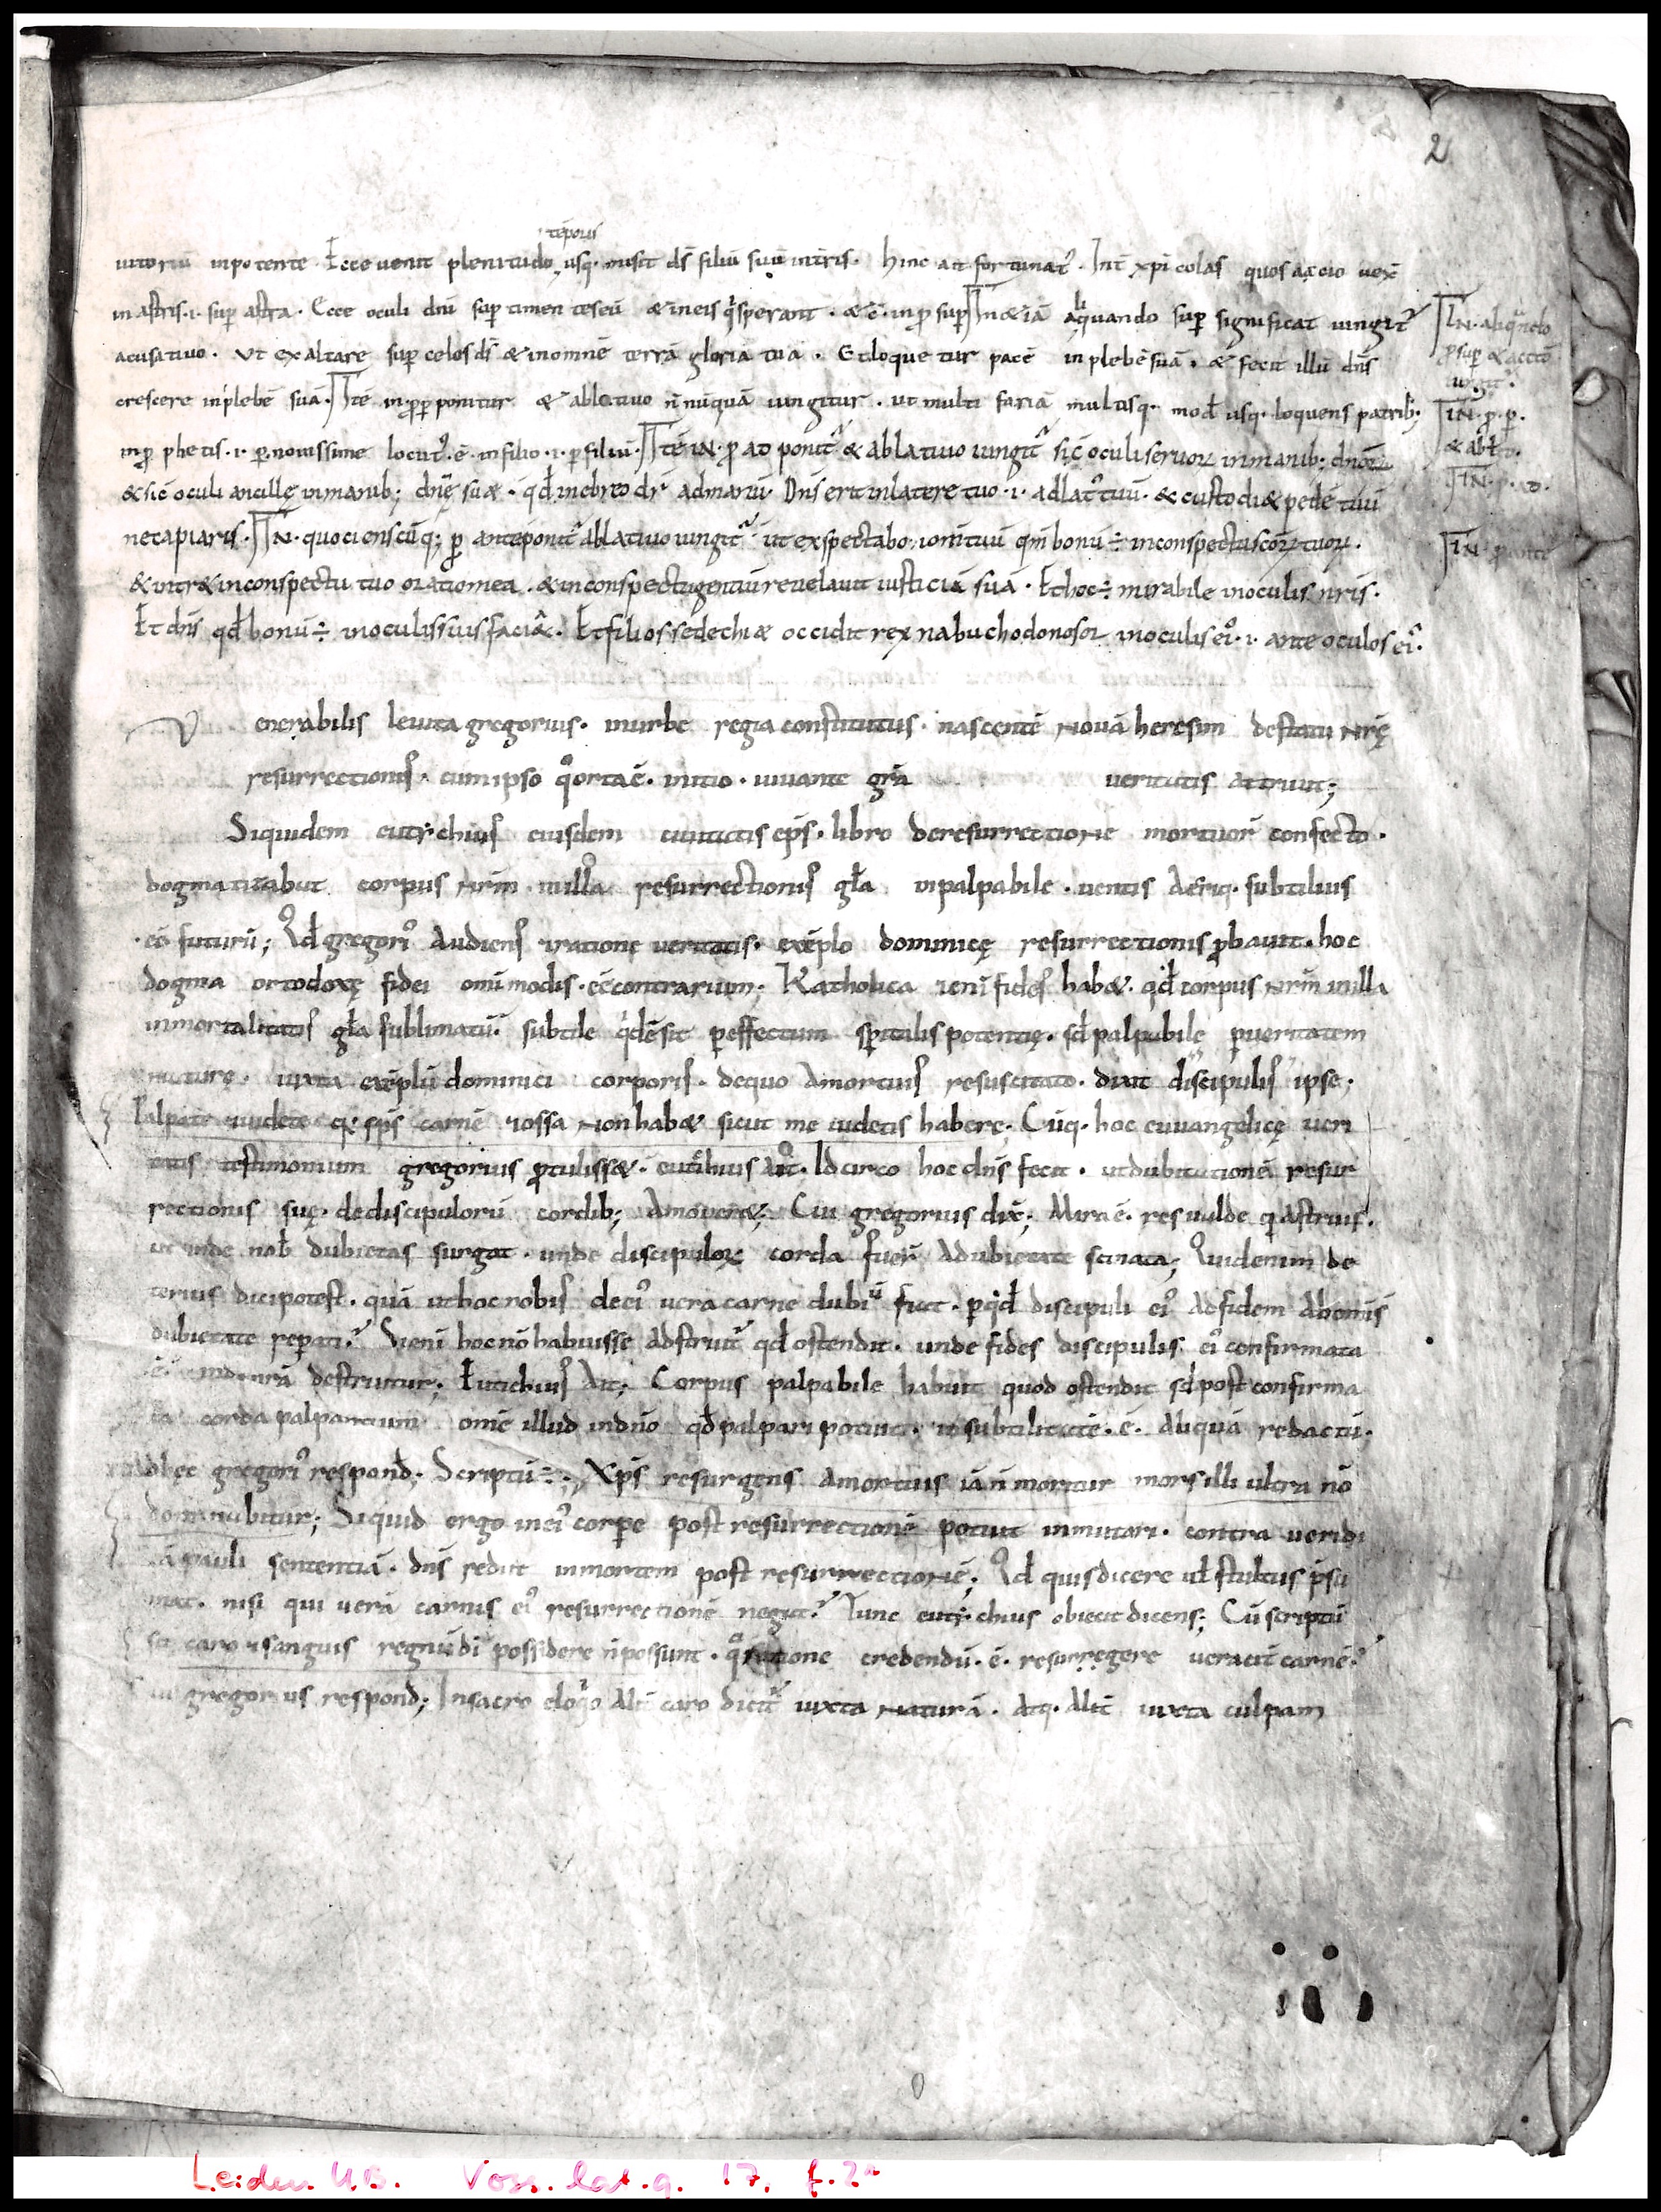 2
tẽporis
inpotente. Ecce uenit plenitudo usq. misit ds̄ filiū suū in t̄ris. hinc ait fortunat᾽. Int̄ xp̄i colas quos
in astris .i. sup̄ astra. Ecce oculi dn̄i sup̄ timen tes eū & in eis qͥ sperant. &c̄. in ꝓ sup̄ In & iā aliquando sup̄ significat iungit᾽
IN. aliqᵃndo
acusatiuo. Ut exaltare sup̄ celos ds̄ & in omnē terrā gloria tua. Et loque tur pacē in plebē suā. & fecit illū dn̄s
ꝓ sup̄ & acc̄to
iungit᾽.
crescere in plebē suā. Itē in. ꝓ ꝑ ponitur & ablatiuo n̄ nūquā iungitur. ut multi fariā multisq. mod̄ usq. loquens patrib;
IN. ꝓ. ꝑ.
in ꝓ phetis .i. ꝑ. nouissime locut᾽. ē. in filio .i. ꝑ filiū. Itē IN. ꝓ ad ponit᾽ & ablatiuo iungit᾽ sic̄ oculi seruoꝝ in manib; dn̄oꝝ
& abl̄to.
& sic̄ oculi ancillę in manib; dn̄ę suæ. qd̄ in ebreo dr̄ ad manū. Dn̄s erit in latere tuo .i. ad lat᾽ tuū. & custodi& pedē tuū
IN. ꝓ. ad.
ne capiaris. IN. quociens cūq; ꝓ ante ponit᾽ ablatiuo iungit᾽ ut exspectabo nom̄ tuū qm̄ bonū ÷ in conspectu sc̄oꝝ tuoꝝ.
IN. ꝓ ante
& intr& in conspectu tuo oratio mea. & in conspectu gentiū reuelauit iusticiā suā. Et hoc ÷ mirabile in oculis nr̄is.
Et dn̄s qd̄ bonū ÷ in oculis suis faciat. Et filios sedechiæ occidit rex nabuchodonosor in oculis ei᾽ .i. ante oculos ei᾽.
Uenerabilis leuita gregorius. in urbe regia constitutus. nascentē nouā heresim de statu nr̄ę
resurrectionis. cum ipso q̊ orta ē. initio. iuuante gr̄a ueritatis attriuit;
Siquidem eutychius eiusdem ciuitatis ep̄s. libro de resurrectione mortuor̄ confecto.
dogmatizabat corpus nr̄m. in illa resurrectionis gl̄a inpalpabile. uentis aeriq. subtilius
.eē futurū; Qd̄ gregori᾽ audiens ratione ueritatis. exēplo dominicę resurrectionis ꝓbauit. hoc
dogma ortodoxę fidei om̄i modis .eē contrarium; Katholica ieni᾽ fides hab&. qd̄ corpus nr̄m in illa
inmortalitatis gl̄a sublimatū. subtile qͥdē sit ꝑ effectum sp̄italis potentię. sd̄ palpabile ꝑ ueritatem
naturę. iuxta exēplū dominici corporis. de quo a mortuis resuscitato. dixit discipulis ipse;
Palpate & uidete q; sp̄s carnē & ossa non hab& sicut me uidetis habere; Cūq. hoc euuangelicę ueri
tatis testimonium gregorius ꝓtuliss&. eutichius ait. Id circo hoc dn̄s fecit. ut dubitationē resur
rectionis suę. de discipulorū cordib; amouer&; Cui gregorius dix̄; Mira ē. res ualde q̄ astruis.
ut inde nob̄ dubietas surgat. unde discipuloꝝ corda fuer̄ a dubietate sanata; Quid enim de
terius dici potest. quā ut hoc nobis de ei᾽ uera carne dubiū fiat. ꝑ qd̄ discipuli ei᾽ ad fidem ab om̄i
dubietate reparati᾽ Si eni᾽ hoc nō habuisse adstruit᾽ qd̄ ostendit. unde fides discipulis ei᾽ confirmata
ē. inde nr̄a destruitur; Eutichius ait; Corpus palpabile habuit quod ostendit sd̄ post confirma
ta corda palpantium om̄e illud in dn̄o qd̄ palpari potuit. in subtilitatē .ē. aliquā redactū.
Ad hęc gregori᾽ respond̄; Scriptū ÷; Xp̄s resurgens a mortuis iā n̄ moritur mors illi ultra nō
dominabitur; Siquid ergo in ei᾽ corꝑe post resurrectionē potuit inmutari. contra ueridi
cā pauli sententiā. dn̄s rediit in mortem post resurrectionē; Qd̄ quis dicere uł stultus p̄su
mat. nisi qui uerā carnis ei᾽ resurrectionē negat᾽ Tunc eutychius obiecit dicens; Cū scriptū
sit caro & sanguis regnū dī possidere n̄ possunt. qᵃ ratione credendū .ē. resurregere ueracit̄ carnē᾽
Cui gregorius respond̄; In sacro eloqͥo alit̄ caro dicit᾽ iuxta naturā. atq. alit̄ iuxta culpam
Leiden U.B. Voss. lat. q. 17. f. 2ʳ